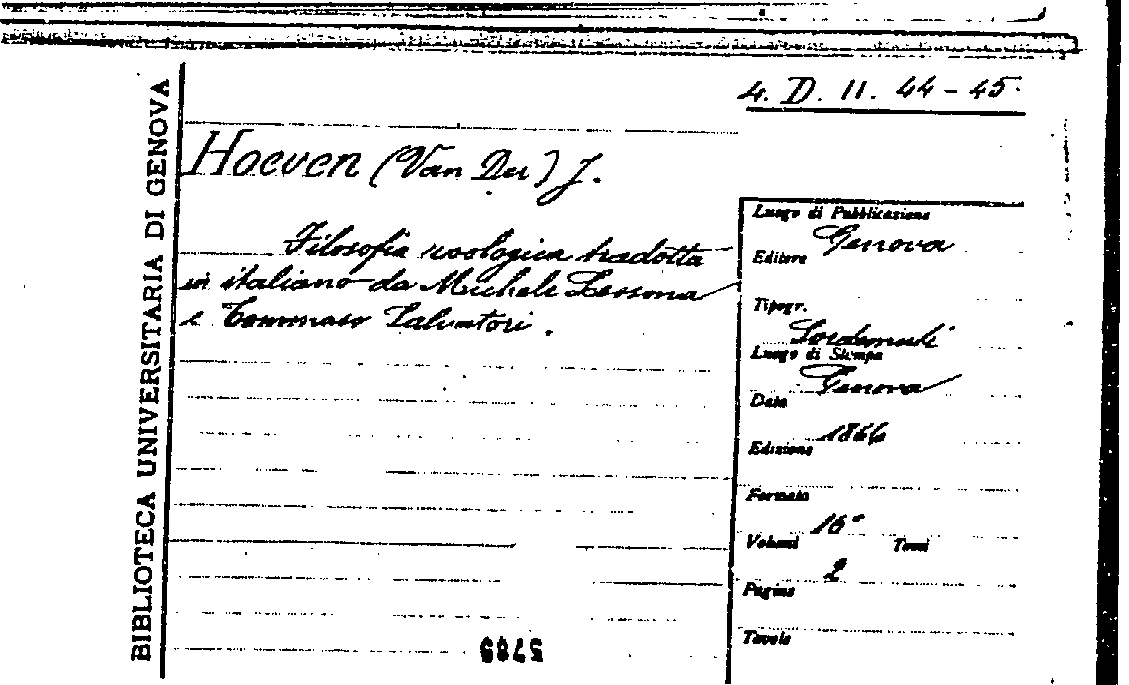 BIBLIOTECA UNIVERSITARIA DI GENOVA
4. D. 11. 44 - 45.
Hoeven (Van Der) J.
Filosofia zoologica tradotta
in italiano da Michele Lessona
e Tommaso Salvatori.
Luogo di Pubblicazione
Genova
Editore
Tipogr.
Luogo di Stampa
Genova
Data
1866
Edizione
Formato
16°
Volumi Tomi
2
Pagine
Tavole
5789